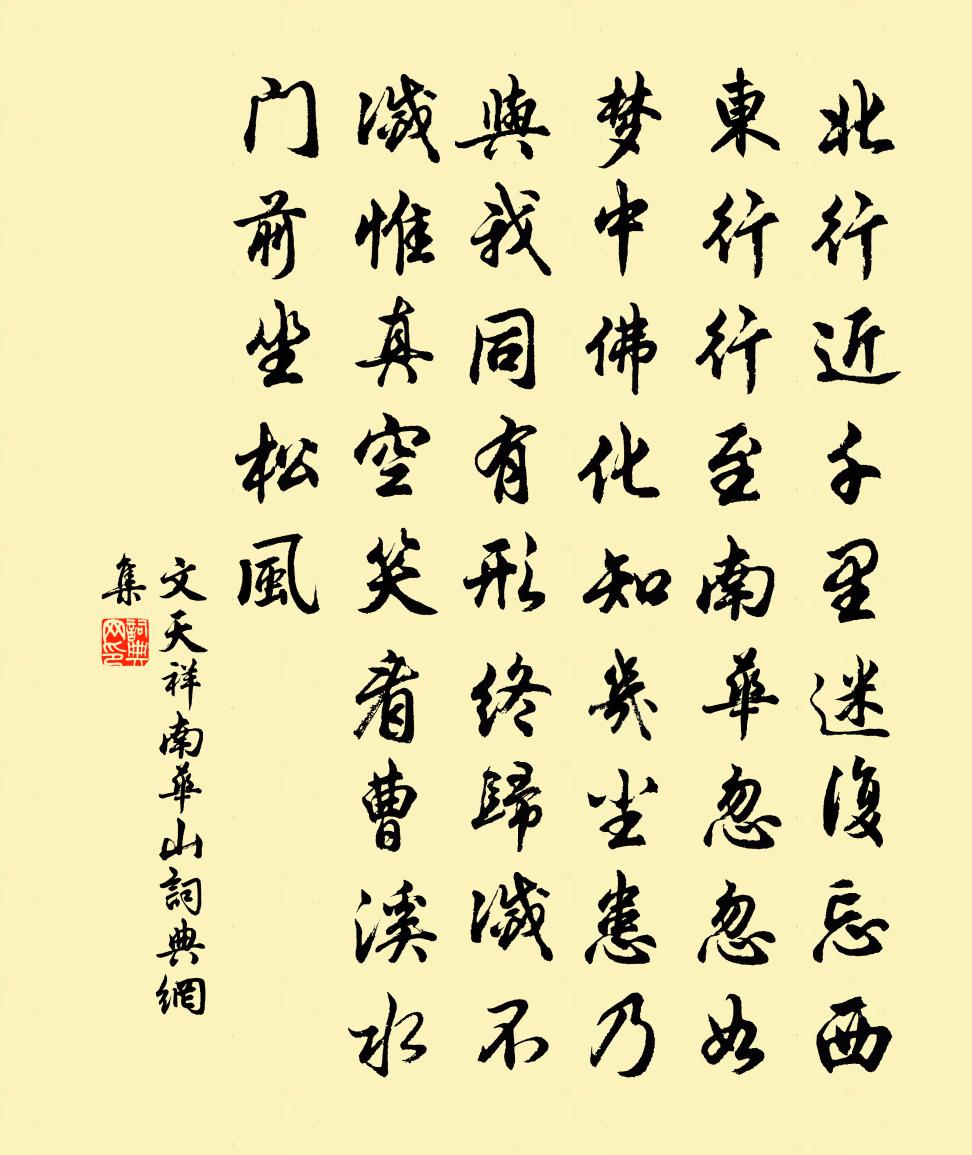 北行近千里迷復忘西
東行行至南華忽忽如
梦中佛化知幾尘患乃
與我同有形终歸滅不
滅惟真空笑看曹溪水
门前坐松風
文天祥南華山詞典網
集
詞典
网印